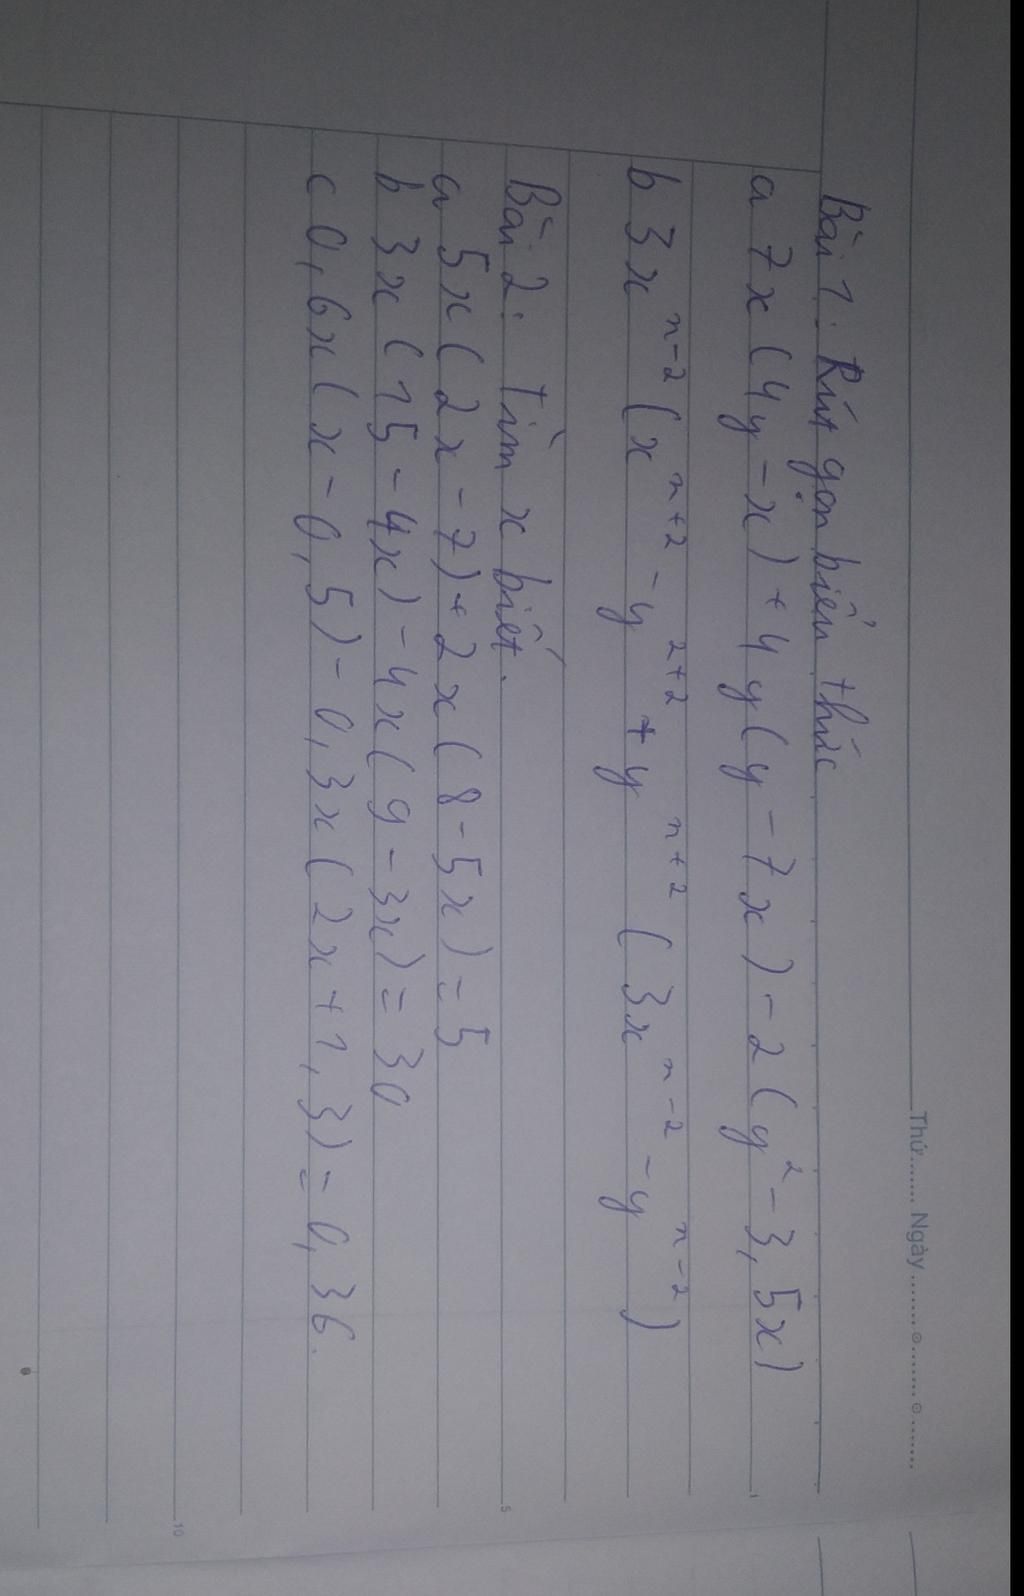 Thứ....... Ngày .......⊙.......⊙.......
Bài 1: Rút gọn biểu thức
a 7x(4y-x)+4y(y-7x)-2(y²-3,5x)
b 3xⁿ⁻²(xⁿ⁺²-y²⁺²+yⁿ⁺²(3xⁿ⁻²-yⁿ⁻²)
Bài 2: Tìm x biết.
a 5x(2x-7)+2x(8-5x)=5
b 3x(15-4x)-4x(9-3x)=30
c 0,6x(x-0,5)-0,3x(2x+1,3)=0,36.
1
5
10